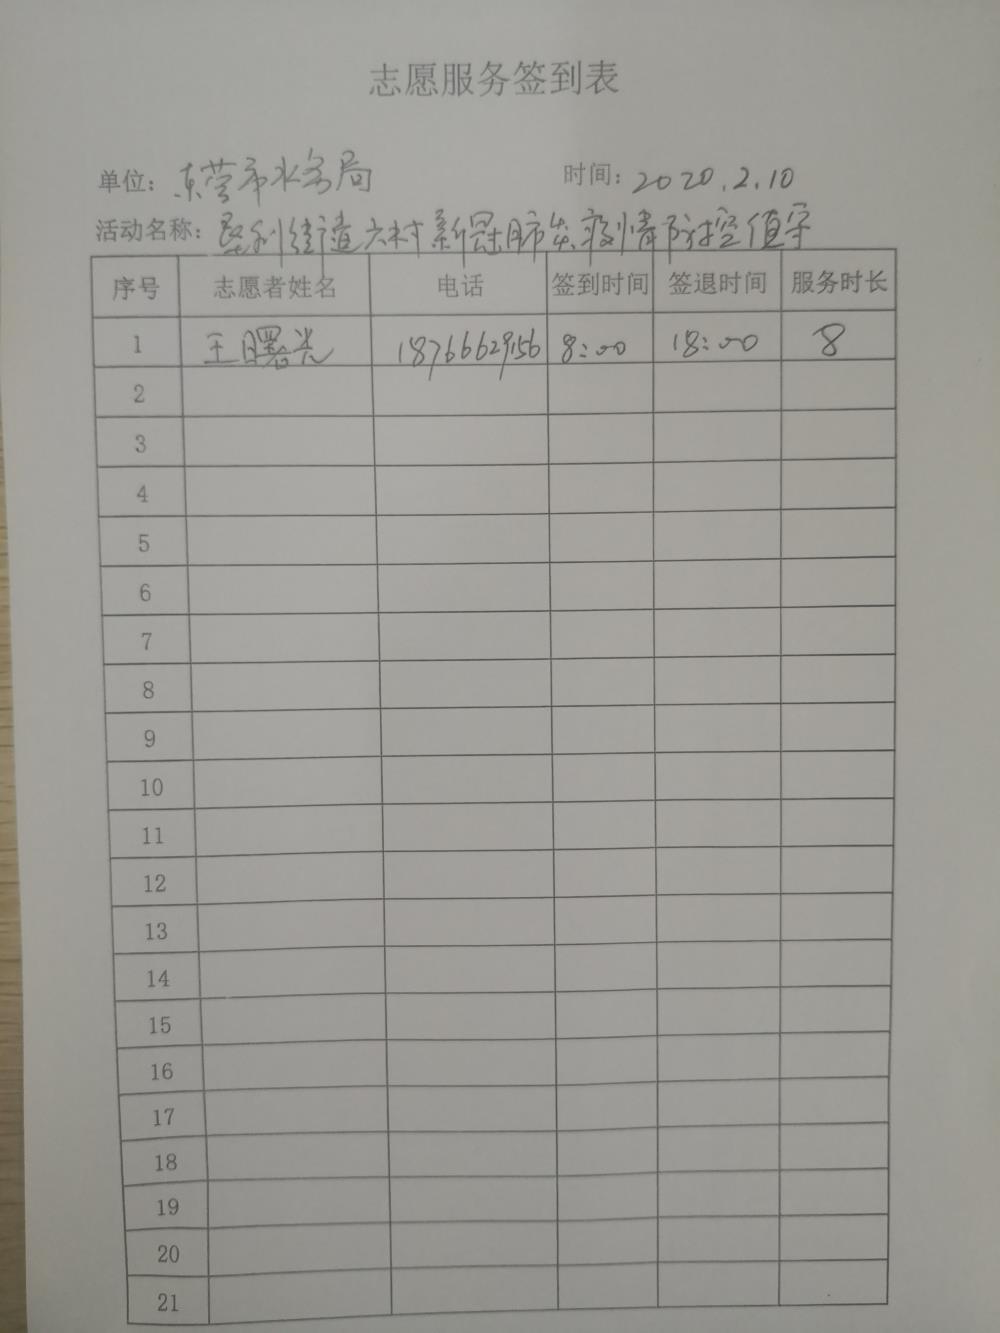 志愿服务签到表
单位：东营市水务局 时间：2020.2.10
活动名称：垦利街道六村新冠肺炎疫情防控值守
序号 志愿者姓名 电话 签到时间 签退时间 服务时长
1 王曙光 18766629156 8:00 18:00 8
2
3
4
5
6
7
8
9
10
11
12
13
14
15
16
17
18
19
20
21